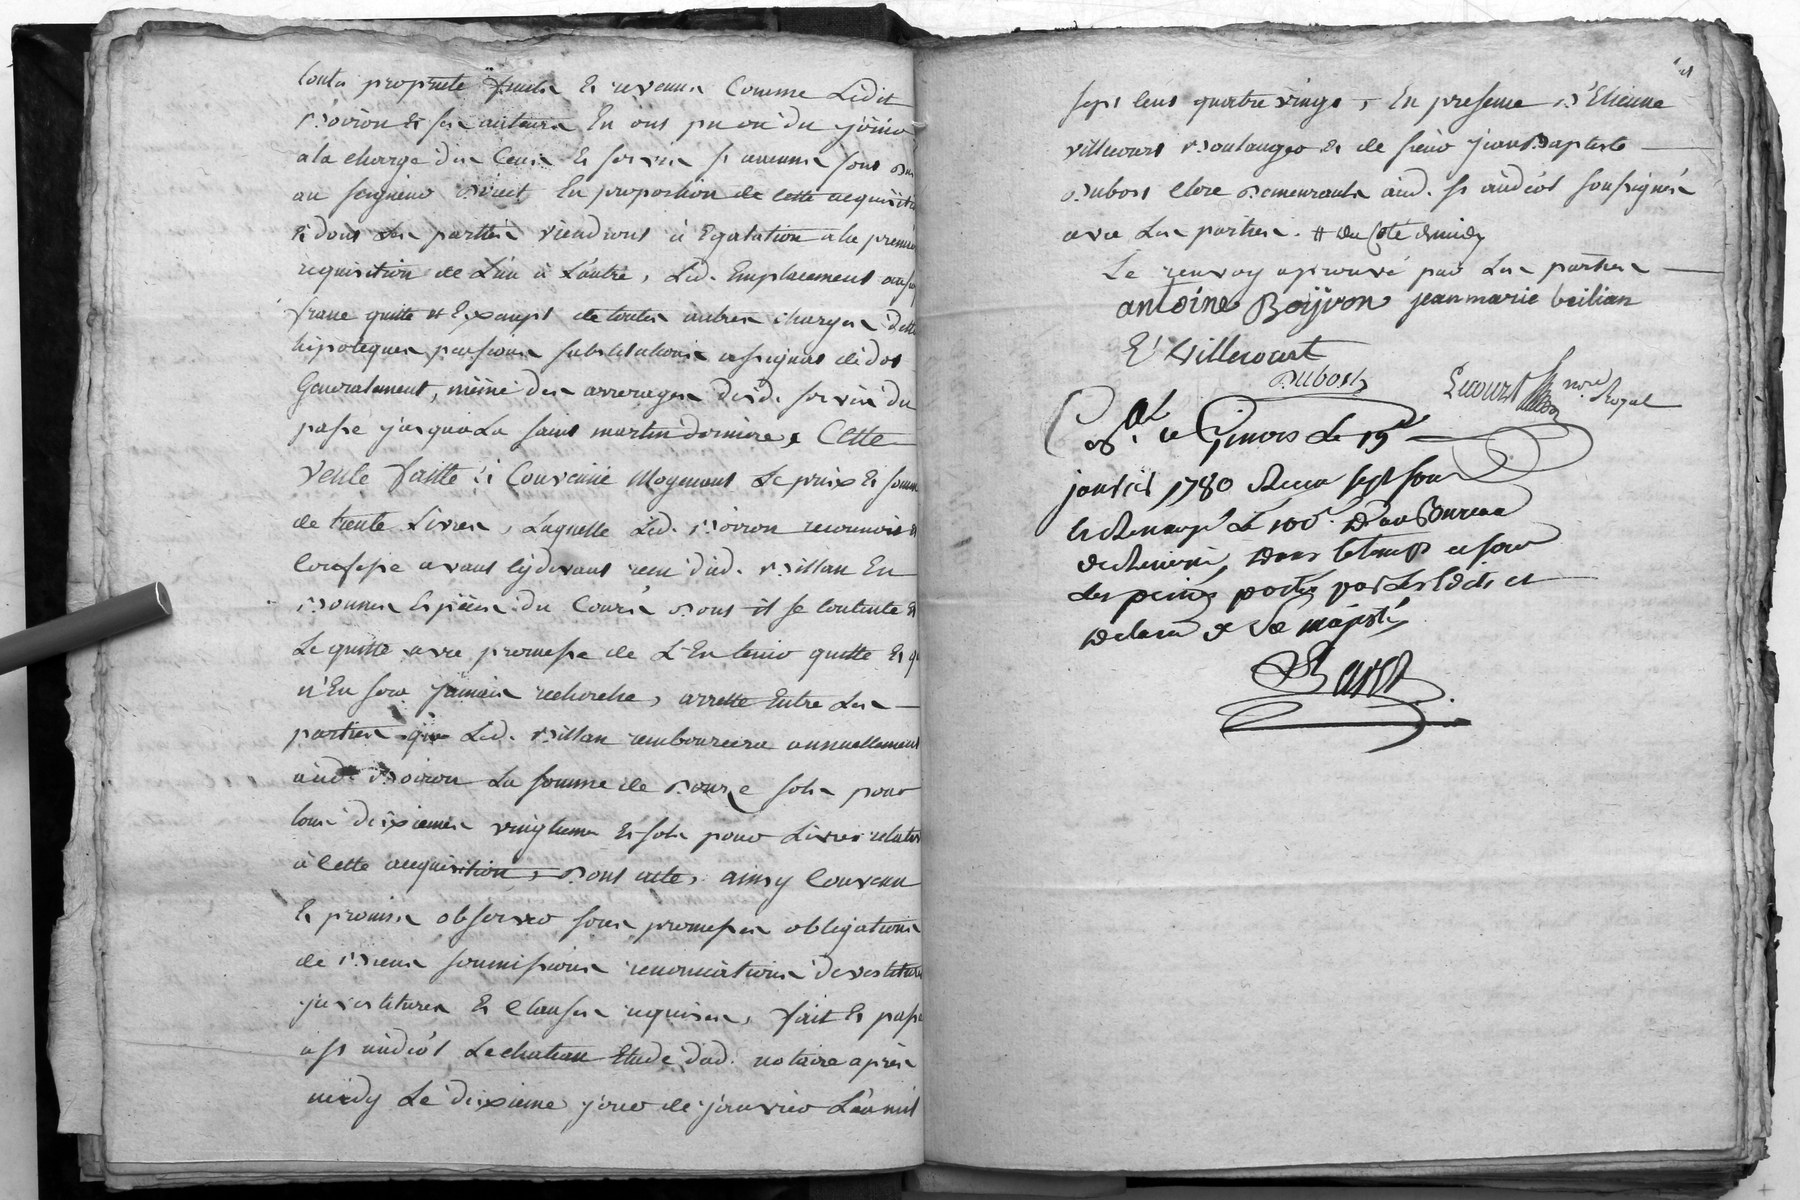 toutte proprieté fruits et revenus Comme Ledit
Boiron et ses auteurs En ont pu ou du joüir
a la charge des Cens et servis sy aucuns sont dus
au seigneur direct En proportion de cette acquisition
et dont les parties viendront à Egalation a la premiere
requisition de L'un à L'autre, Led. Emplacement au sur
franc quitte et Exempt de toutes autres charges dettes
hipoteques pensions substitutions assignat de dot
Generalement, même des arrerages desd. servis du
passé jusqua La saint martin derniere, Cette
vente faitte et Convenüe Moyenant Le prix et somme
de trente Livres, Laquelle Led. Boiron reconnois et
Confesse avant cydevant reçu dud. Billan En
Bonnes Especes du Cours dont il se contente et
Le quitte avec promesse de L'En tenir quitte et qu
n'En sera jamais recherche, arretté Entre Les
parties que Led. Billan rembourcera annuellement
aud. Boiron La somme de Douze sols pour
tous dixiemes vingtiemes et sols pour Livres relatifs
à Cette acquisition, Dont acte, ainsy Convenu
Et promis observer sous promesses obligations
de Biens soumissions renonciations devestitures
jnvestitures Et Clauses requises, fait Et passé
a st andiol Le chateau Etude dud. notaire après
midy Le dixieme jour de janvier L'an mil
sept Cens quatre vingt, En presence d'Etienne
villecourt Boulanger et de sieur jean Baptiste
Dubost Clerc Demeurants aud. st andiol soussignés
avec Les parties. # du Côté de midy
Le renvoy aprouvé par Les parties
antoine Boÿron jean marie beilian
E Villecourt
Dubost
Lecourt nore Royal
Colé a Givors Le 19e
janvier 1780 Recu sept sous
Dans le temps et sous
les peines portes par Les Edits et
Declaron de Sa majesté